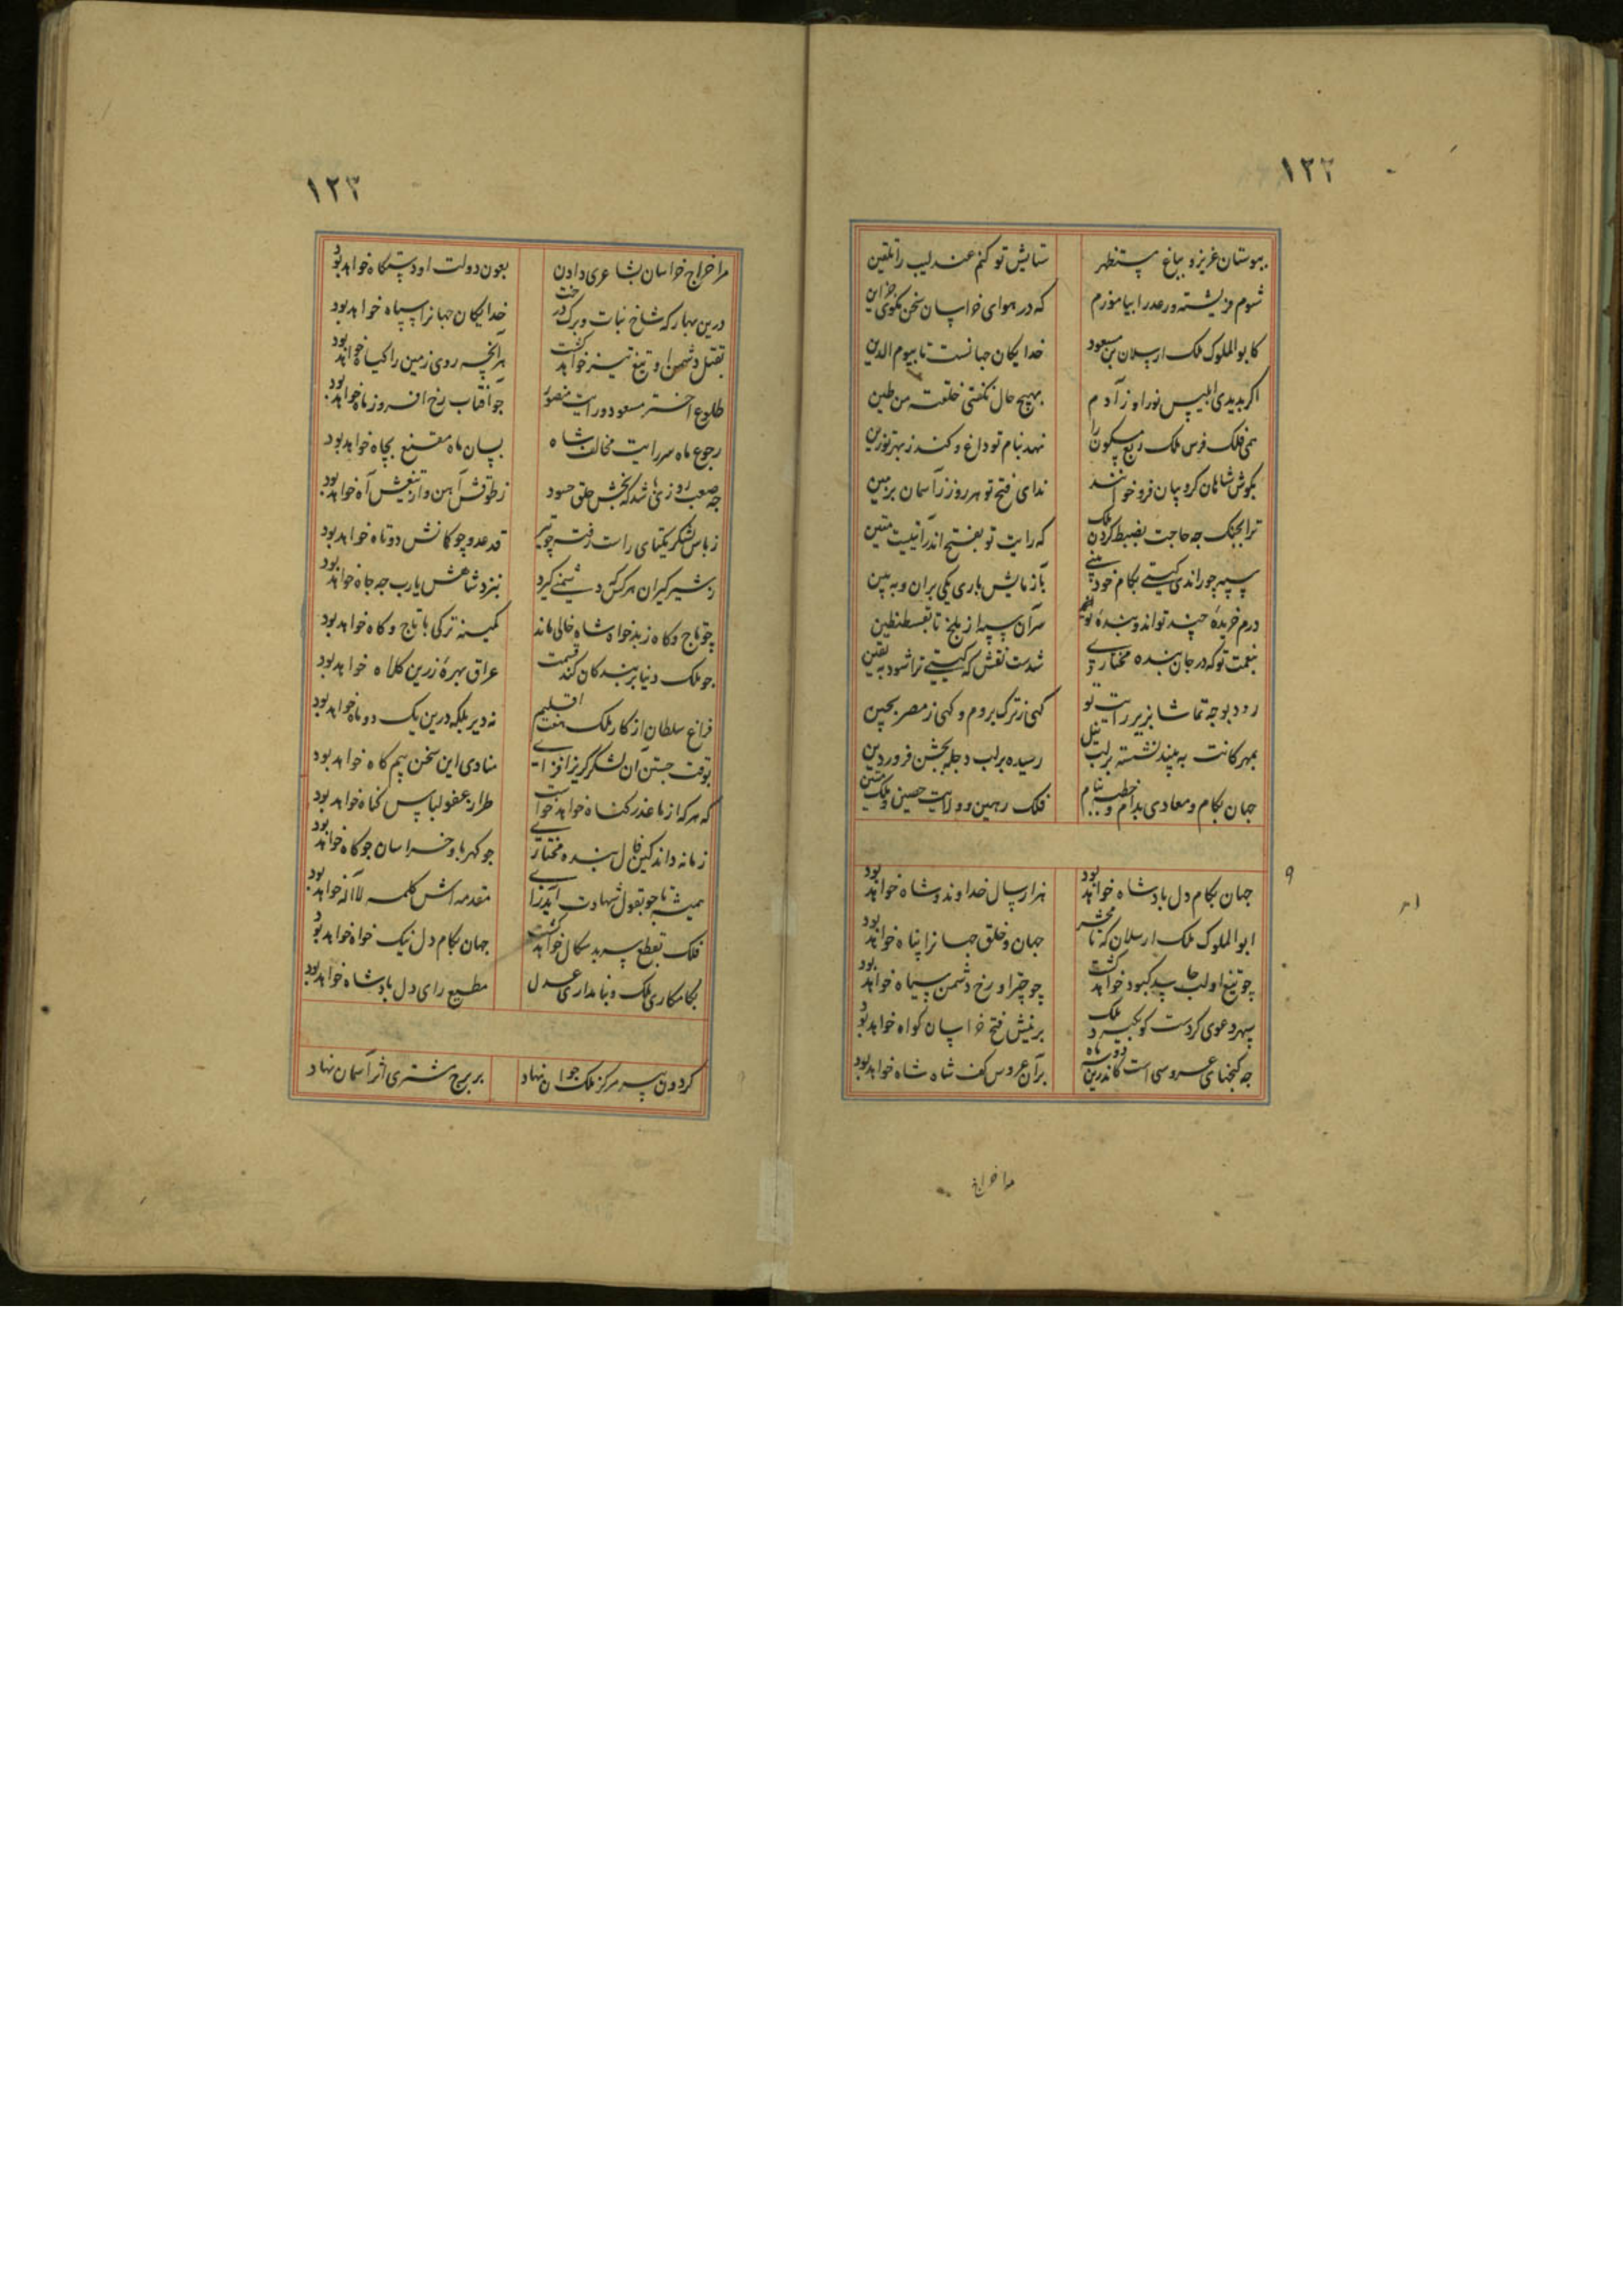 ۱۲۲
ببوستان عزیز و بباغ مستظهر ستایش تو کنم عندلیب را تلقین
شوم فریشته و رعد را بیاموزم که در هوای خراسان سخن نگوی جزاین
کابوالملوک ملک ارسلان بن مسعود خدایکان جهانست تا بیوم الدین
اگر بدیدی ابلیس نور او ز آدم بهیچ حال نگفتی خلقته من طین
همی فلک فرس ملک ربع مسکون را نهد بنام تو داغ و کند ز بهر تو زین
بگوش شاهان کروبیان فرو خوانند ندای فتح تو هر روز ز آسمان بزمین
ترا بجنک چه حاجت بضبط کردن ملک که رایت تو بفتح اندر آیتیست متین
سپه چو راندی گیتی بکام خود بینی بآزمایش باری یکی بران و ببین
درم خریدهٔ چند تواند و بندهٔ تو سران سپه از بلخ تا قسطنطین
بنعمت تو که در جان بنده مختاری شدست نقش که گیتی ترا شود بیقین
رود بوجه تماشا بزیر رایت تو گهی ز ترک بروم و گهی ز مصر بچین
بمهرگانت به بیند نشسته بر لب نیل رسیده بر لب دجله بجشن فروردین
جهان بکام و معادی بدام و خطبه بنام فلک رهین و ولایت حصین و ملک متین
۹
جهان بکام دل پادشاه خواهد بود هزار سال خداوند و شاه خواهد بود
ابوالملوک ملک ارسلان که تا محشر جهان و خلق جهانرا پناه خواهد بود
چو تیغ او لب حاسد کبود خواهد گشت چو چتر او رخ دشمن سیاه خواهد بود
سپهر دعوی کردست کو بگیرد ملک برینش فتح خراسان گواه خواهد بود
چه گنجهای عروسی است کاندرین دو سه ماه بر آن عروس کف شاه شاه خواهد بود
مرا خراج
۱۲۳
مرا خراج خراسان بشاعری دادن بعون دولت او دستگاه خواهد بود
درین بهار که شاخ نبات و برک درخت خدایکان جهانرا سپاه خواهد بود
بقتل دشمن او تیغ تیز خواهد گشت هر آنچه روی زمین را گیاه خواهد بود
طلوع اختر مسعود و رایت منصور چو آفتاب رخ افروز ماه خواهد بود
رجوع ماه سر رایت مخالف شاه بسان ماه مقنع بچاه خواهد بود
چه صعب روزی باشد که بخش حلق حسود ز طوقش آهن و از تیغش آه خواهد بود
ز باس لشکر یکتای راست رفته چو تیر قد عدو چو کمانش دوتاه خواهد بود
ز شیرگیران هر کس که دشمنی گیرد بنزد شاهش یارب چه جاه خواهد بود
چو تاج و گاه ز بدخواه شاه خالی ماند کمینه ترکی با تاج و گاه خواهد بود
چو ملک دنیا بر بندگان کند قسمت عراق بهرهٔ زرین کلاه خواهد بود
فراغ سلطان از کار ملک هفت اقلیم نه دیر بلکه درین یک دو ماه خواهد بود
بوقت جستن آن لشکر گریز افزای منادی این سخن بیم کاه خواهد بود
که هر که از ما عذر گناه خواهد خواست طراز عفو لباس گناه خواهد بود
زمانه داند کین فال بنده مختاری چو کهربا و خراسان چو کاه خواهد بود
همیشه تا چو بقول شهادت آید رای مقدمه اش کلمه لا اله خواهد بود
فلک بقطع سر بدسکال خواهد گشت جهان بکام دل نیک خواه خواهد بود
بکامکاری ملک و بنامداری عدل مطیع رای دل پادشاه خواهد بود
گردون پیر مرکز ملک جوان نهاد بر برج مشتری اثر آسمان نهاد